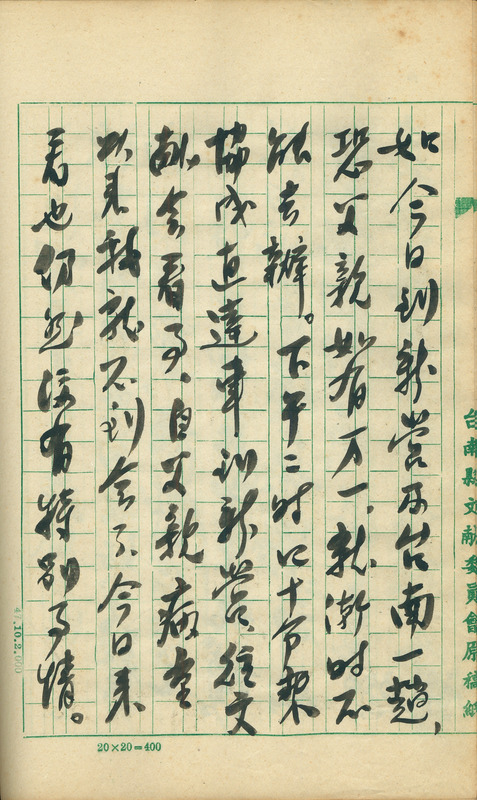 台南縣文献委員會原稿紙
如今日到新營及台南一趟,
恐父親如有万一,就漸时不
能去辦。下午二时四十分乘
協成直達車到新營,往文
献会看事、自父親病重
以来我就不到会了,今日来
看也仍然没有特别事情。
.10.2.
20×20=400